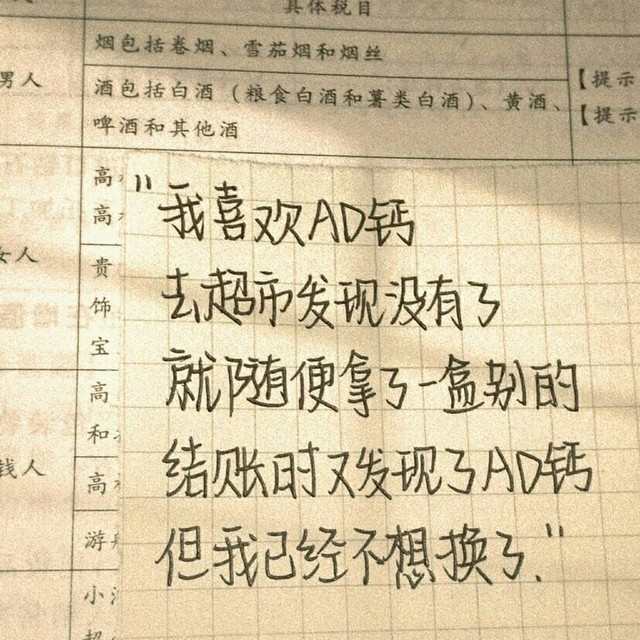 具体税目
烟包括卷烟、雪茄烟和烟丝
男人
酒包括白酒（粮食白酒和薯类白酒）、黄酒、
啤酒和其他酒
【提示
【提示
高
高
女人
贵
饰
宝
高
和
钱人
高
游
小
"我喜欢AD钙
去超市发现没有了
就随便拿了一盒别的
结账时又发现了AD钙
但我已经不想换了."